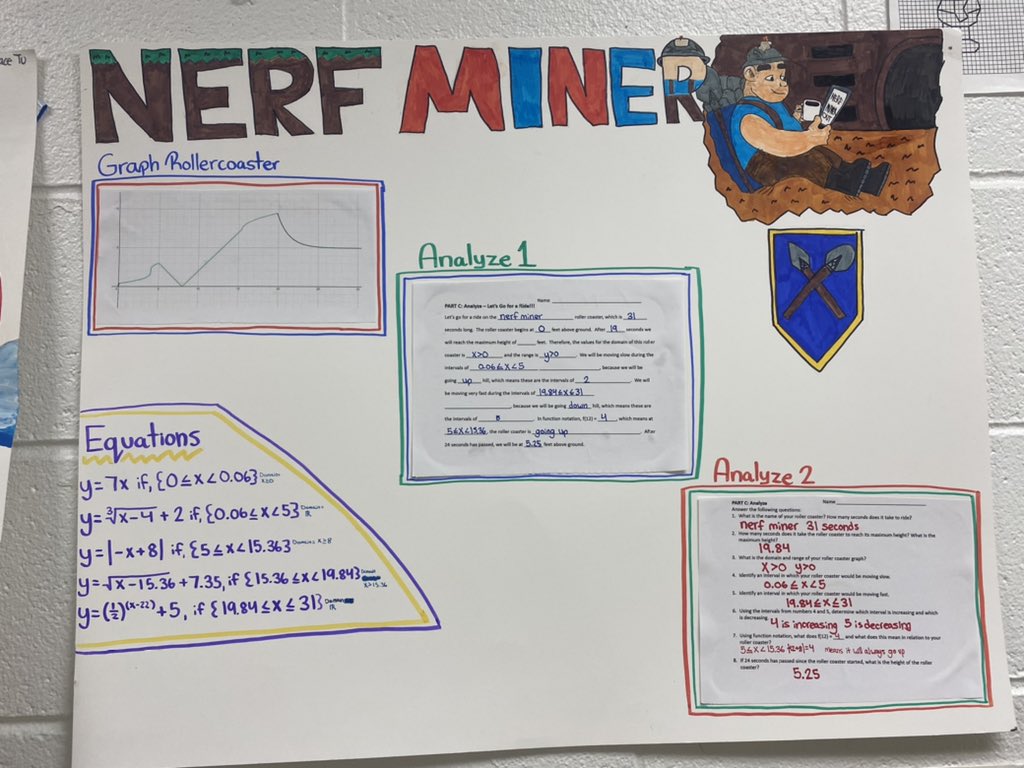 NERF MINER
Graph Rollercoaster
Analyze 1
Name
PART C: Analyze – Let's Go for a Ride!!!
Let's go for a ride on the nerf miner roller coaster, which is 31
seconds long. The roller coaster begins at 0 feet above ground. After 19 seconds we
will reach the maximum height of ______ feet. Therefore, the values for the domain of this roller
coaster is x>0 and the range is y>0. We will be moving slow during the
intervals of 0.06≤x<5, because we will be
going up hill, which means these are the intervals of 2. We will
be moving very fast during the intervals of 19.84≤x≤31
, because we will be going down hill, which means these are
the intervals of B. In function notation, f(12) = 4, which means at
5≤x<15.36, the roller coaster is going up. After
24 seconds has passed, we will be at 5.25 feet above ground.
Equations
y=7x if, {0≤x<0.06} Domain:
y=∛x-4 + 2 if, {0.06≤x<5} Domain: ℝ
y=|-x+8| if, {5≤x<15.36} Domain: x≥8
y=√x-15.36 + 7.35, if {15.36≤x<19.84} x>15.36
y=(1/2)^(x-22) + 5, if {19.84≤x≤31} Domain ℝ
Analyze 2
PART C: Analyze Name
Answer the following questions:
1. What is the name of your roller coaster? How many seconds does it take to ride?
nerf miner 31 seconds
2. How many seconds does it take the roller coaster to reach its maximum height? What is the
maximum height?
19.84
3. What is the domain and range of your roller coaster graph?
x>0 y>0
4. Identify an interval in which your roller coaster would be moving slow.
0.06≤x<5
5. Identify an interval in which your roller coaster would be moving fast.
19.84≤x≤31
6. Using the intervals from numbers 4 and 5, determine which interval is increasing and which
is decreasing.
4 is increasing 5 is decreasing
7. Using function notation, what does f(12) = 4 and what does this mean in relation to your
roller coaster?
5≤x<15.36 =4 means it will always go up
8. If 24 seconds has passed since the roller coaster started, what is the height of the roller
coaster?
5.25